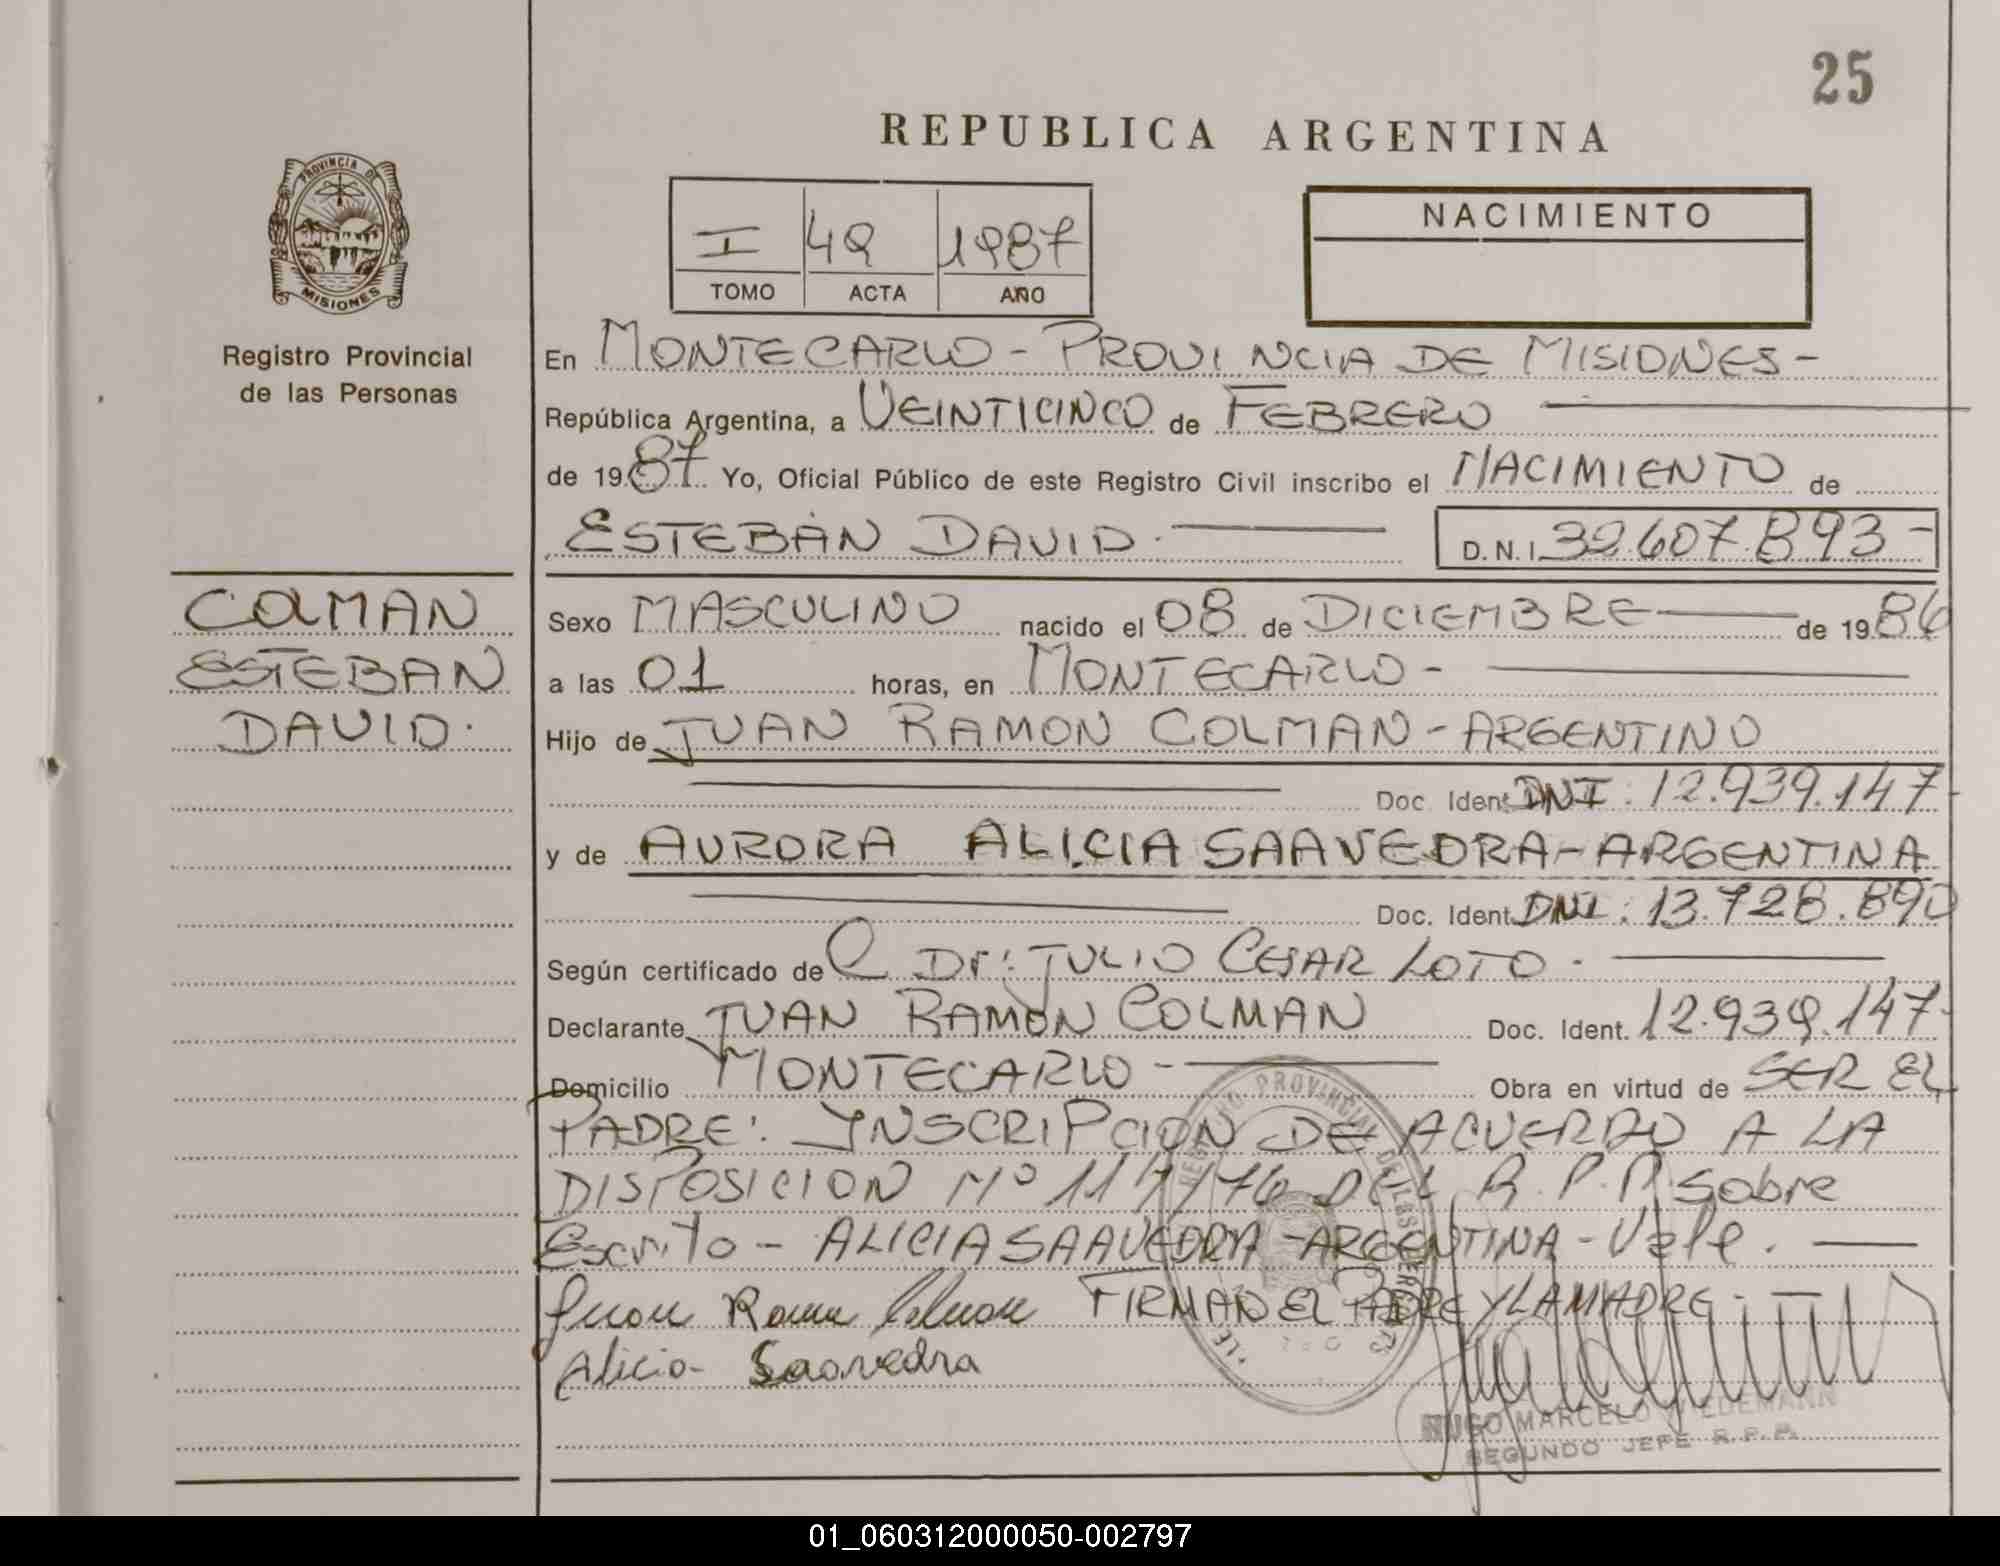 25
REPUBLICA ARGENTINA
PROVINCIA DE
MISIONES
Registro Provincial
de las Personas
I 49 1987
TOMO ACTA AÑO
NACIMIENTO
En MONTECARLO - PROVINCIA DE MISIONES -
República Argentina, a VEINTICINCO de FEBRERO
de 1987 Yo, Oficial Público de este Registro Civil inscribo el NACIMIENTO de
ESTEBAN DAVID. D.N.I. 32.607.893-
COLMAN
ESTEBAN
DAVID.
Sexo MASCULINO nacido el 08 de DICIEMBRE de 1986
a las 01 horas, en MONTECARLO -
Hijo de JUAN RAMON COLMAN - ARGENTINO
Doc. Ident. DNI: 12.939.147-
y de AURORA ALICIA SAAVEDRA - ARGENTINA
Doc. Ident. DNI: 13.728.890
Según certificado de Dr: JULIO CESAR LOTO.
Declarante JUAN RAMON COLMAN Doc. Ident. 12.939.147-
Domicilio MONTECARLO - Obra en virtud de SER EL
PADRE: INSCRIPCION DE ACUERDO A LA
DISPOSICION Nº 117/76 DEL R.P.P. Sobre
Escrito - ALICIA SAAVEDRA - ARGENTINA - Vale.
Juan Ramon Colman FIRMAN EL PADRE Y LA MADRE -
Alicia Saavedra
REGISTRO PROVINCIAL DE LAS PERSONAS
HUGO MARCELO WIEDEMANN
SEGUNDO JEFE R.P.P.
01_060312000050-002797